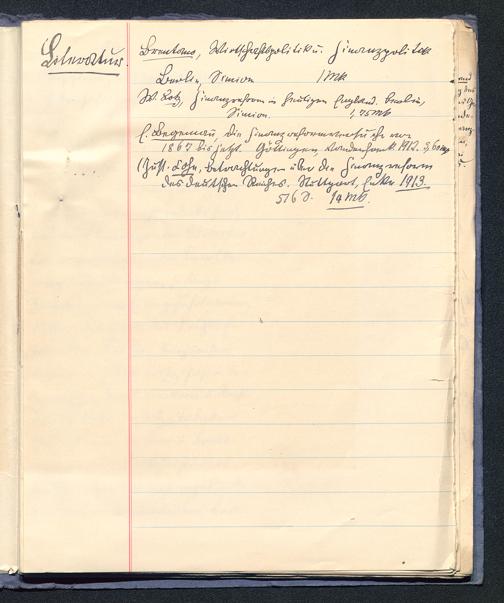 Literatur.
Brentano, Wirtschaftspolitik u. Finanzpolitik
Berlin, Simion 1 Mk
W. Lotz, Finanzreform im heutigen England. Berlin,
Simion. 1,75 Mk
E. Begemann, die Finanzreformversuche von
1867 bis jetzt. Göttingen, Vandenhoeck 1912. 3,60 Mk
(Gust. Cohn. Betrachtungen über die Finanzreform
des deutschen Reiches. Stuttgart, Enke 1913.
516 S. 14 Mk.